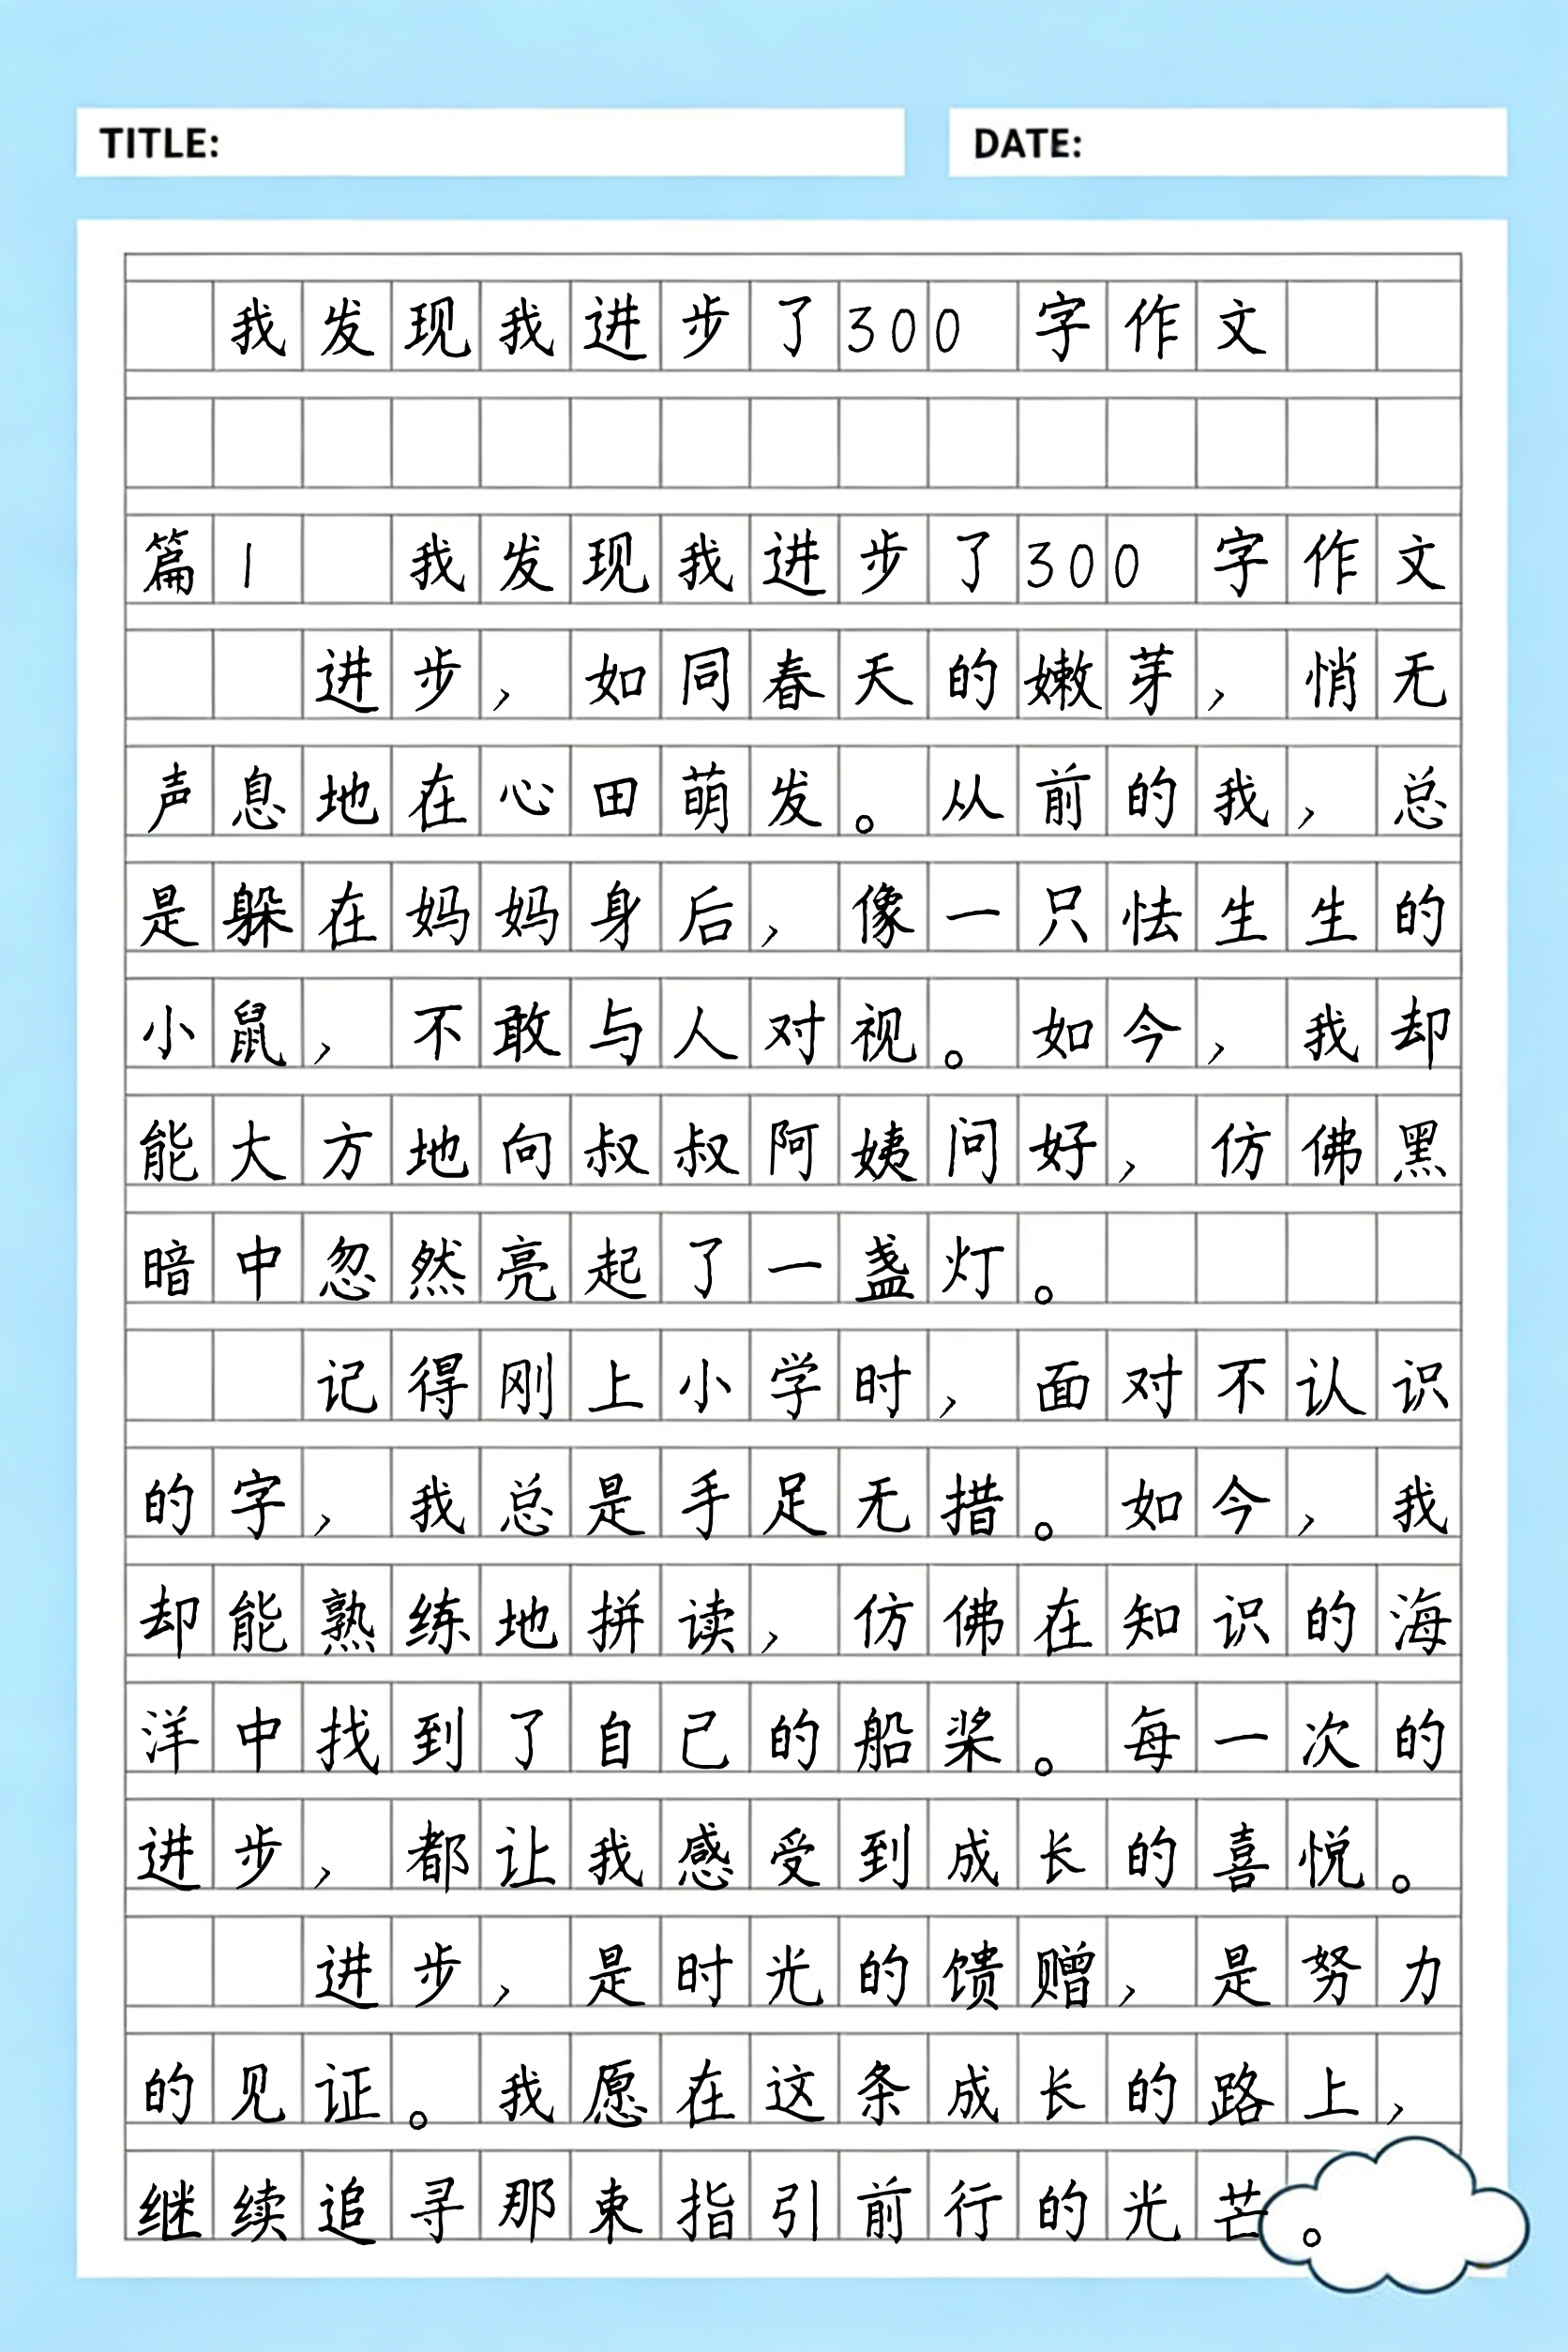 TITLE:
DATE:
我发现我进步了300字作文
篇1 我发现我进步了300字作文
进步，如同春天的嫩芽，悄无
声息地在心田萌发。从前的我，总
是躲在妈妈身后，像一只怯生生的
小鼠，不敢与人对视。如今，我却
能大方地向叔叔阿姨问好，仿佛黑
暗中忽然亮起了一盏灯。
记得刚上小学时，面对不认识
的字，我总是手足无措。如今，我
却能熟练地拼读，仿佛在知识的海
洋中找到了自己的船桨。每一次的
进步，都让我感受到成长的喜悦。
进步，是时光的馈赠，是努力
的见证。我愿在这条成长的路上，
继续追寻那束指引前行的光芒。